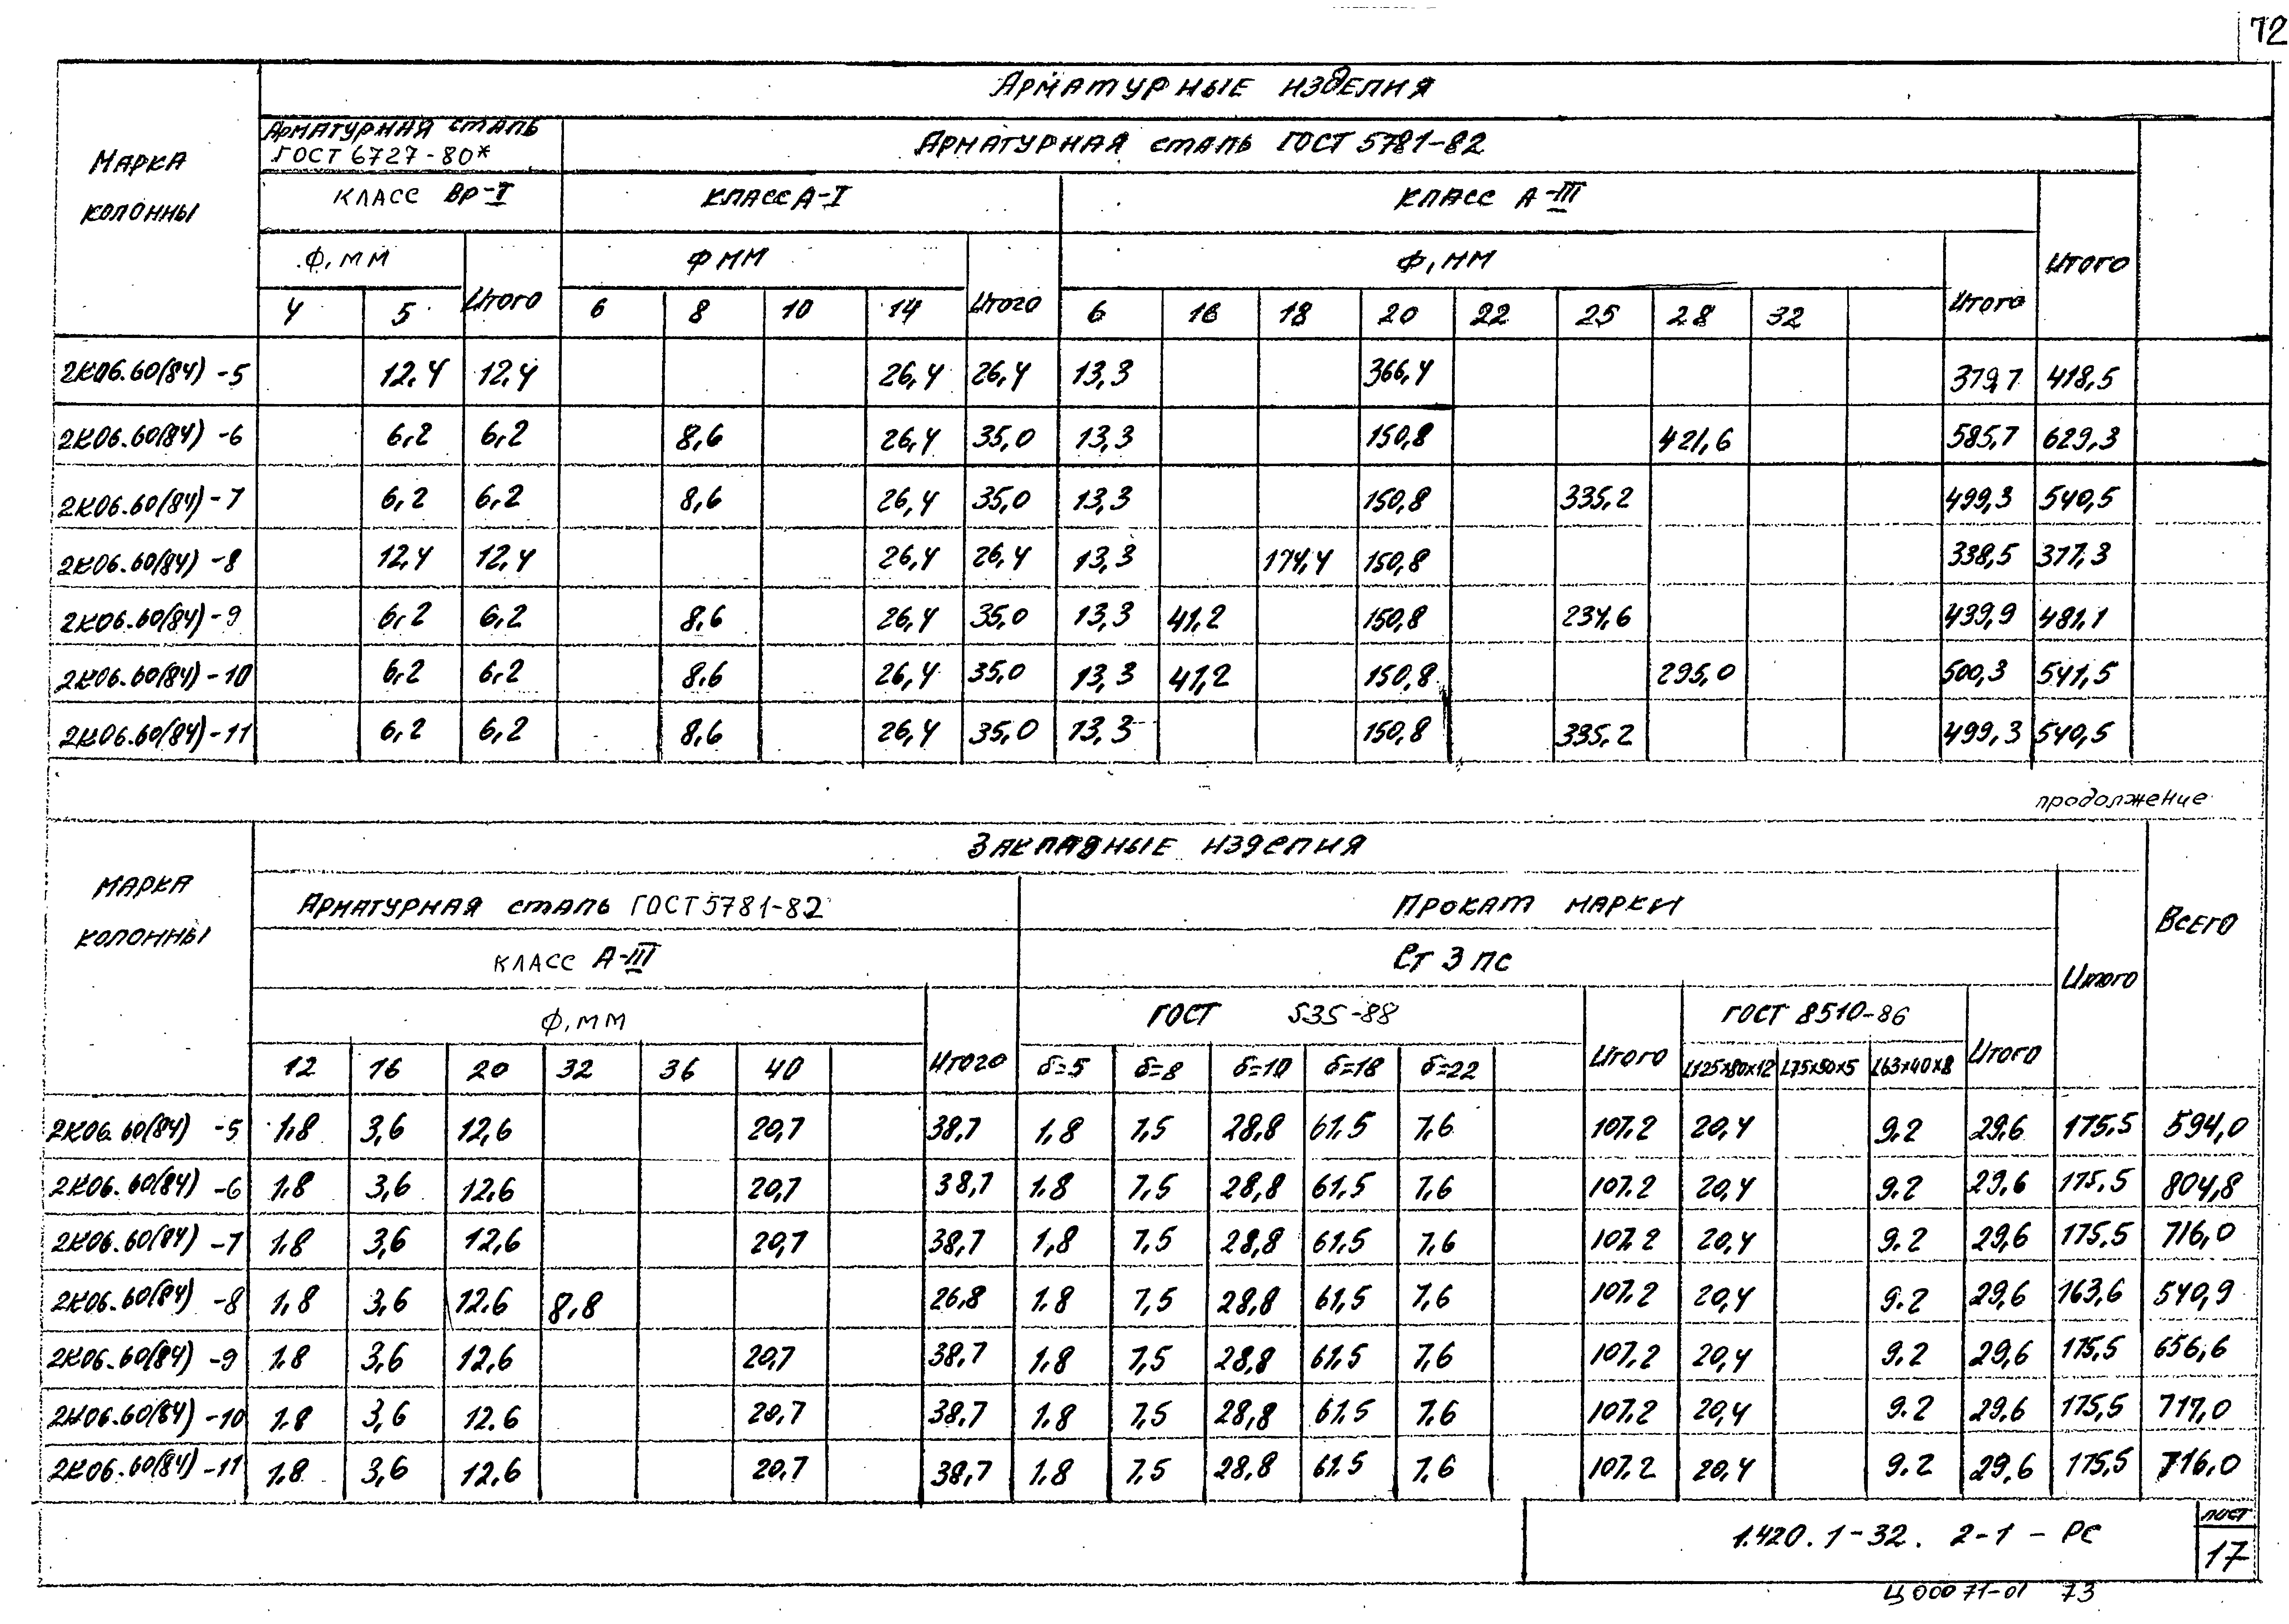 72
Арматурные изделия
Марка колонны
Арматурная сталь ГОСТ 6727-80*
Арматурная сталь ГОСТ 5781-82
Класс Вр-I
Класс А-I
Класс А-III
Итого
Ф, мм
Итого
Ф мм
Итого
Ф, мм
Итого
4 5 6 8 10 14 6 16 18 20 22 25 28 32
2К06.60(84) -5 12,4 12,4 26,4 26,4 13,3 366,4 379,7 418,5
2К06.60(84) -6 6,2 6,2 8,6 26,4 35,0 13,3 150,8 421,6 585,7 629,3
2К06.60(84) -7 6,2 6,2 8,6 26,4 35,0 13,3 150,8 335,2 499,3 540,5
2К06.60(84) -8 12,4 12,4 26,4 26,4 13,3 174,4 150,8 338,5 377,3
2К06.60(84) -9 6,2 6,2 8,6 26,4 35,0 13,3 41,2 150,8 234,6 439,9 481,1
2К06.60(84) -10 6,2 6,2 8,6 26,4 35,0 13,3 41,2 150,8 295,0 500,3 541,5
2К06.60(84) -11 6,2 6,2 8,6 26,4 35,0 13,3 150,8 335,2 499,3 540,5
продолжение
Марка колонны
Закладные изделия
Всего
Арматурная сталь ГОСТ 5781-82
Прокат марки
Итого
Класс А-III
Ст 3 пс
Ф, мм
Итого
ГОСТ 535-88
Итого
ГОСТ 8510-86
Итого
12 16 20 32 36 40 δ=5 δ=8 δ=10 δ=18 δ=22 L125х80х12 L75х50х5 L63х40х8
2К06.60(84) -5 1,8 3,6 12,6 20,7 38,7 1,8 7,5 28,8 61,5 7,6 107,2 20,4 9,2 29,6 175,5 594,0
2К06.60(84) -6 1,8 3,6 12,6 20,7 38,7 1,8 7,5 28,8 61,5 7,6 107,2 20,4 9,2 29,6 175,5 804,8
2К06.60(84) -7 1,8 3,6 12,6 20,7 38,7 1,8 7,5 28,8 61,5 7,6 107,2 20,4 9,2 29,6 175,5 716,0
2К06.60(84) -8 1,8 3,6 12,6 8,8 26,8 1,8 7,5 28,8 61,5 7,6 107,2 20,4 9,2 29,6 163,6 540,9
2К06.60(84) -9 1,8 3,6 12,6 20,7 38,7 1,8 7,5 28,8 61,5 7,6 107,2 20,4 9,2 29,6 175,5 656,6
2К06.60(84) -10 1,8 3,6 12,6 20,7 38,7 1,8 7,5 28,8 61,5 7,6 107,2 20,4 9,2 29,6 175,5 717,0
2К06.60(84) -11 1,8 3,6 12,6 20,7 38,7 1,8 7,5 28,8 61,5 7,6 107,2 20,4 9,2 29,6 175,5 716,0
1.420.1-32. 2-1 - РС
лист
17
Ц00071-01 73